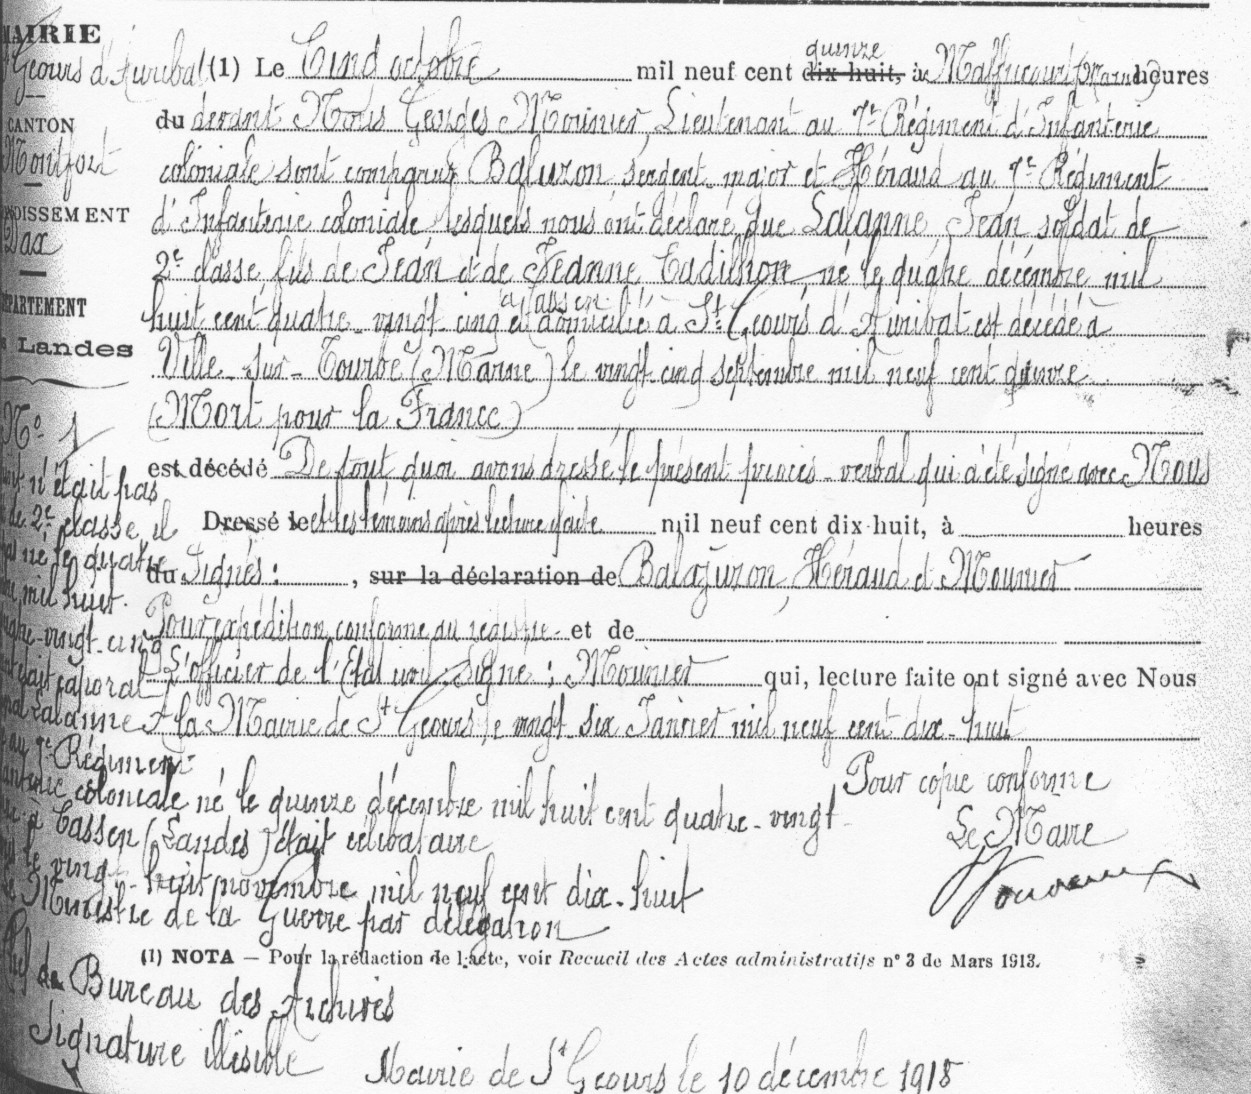 MAIRIE
St Geours d'Auribat
CANTON
Montfort
ARRONDISSEMENT
Dax
DÉPARTEMENT
Landes
quinze
(1) Le Cinq octobre mil neuf cent dix-huit, à Maffrécourt (Marne) heures
du devant Nous Georges Mounier Lieutenant au 7e Régiment d'Infanterie
coloniale sont comparus Baluzon, sergent-major et Héraud au 7e Régiment
d'Infanterie coloniale lesquels nous ont déclaré que Lalanne Jean soldat de
2e classe, fils de Jean et de Jeanne Cadilhon, né le quatre décembre mil
à Cassen
huit cent quatre-vingt cinq et domicilié à St Geours d'Auribat est décédé à
Ville-sur-Tourbe (Marne) le vingt-cinq septembre mil neuf cent quinze
(Mort pour la France)
est décédé De tout quoi avons dressé le présent procès-verbal qui a été signé avec Nous
Dressé le et les témoins après lecture faite mil neuf cent dix-huit, à heures
du Signés: , sur la déclaration de Balazuzon, Héraud et Mounier
Pour expédition conforme au registre et de
L'officier de l'Etat civil. Signé: Mounier qui, lecture faite ont signé avec Nous
A la Mairie de St Geours, le vingt-six Janvier mil neuf cent dix-huit
Pour copie conforme
Le Maire
No 1
n'était pas
de 2e classe, il
né le quatre
mil huit
quatre-vingt-cinq
était caporal
Lalanne
au 7e Régiment
coloniale né le quinze décembre mil huit cent quatre-vingt
à Cassen (Landes) était célibataire
le vingt-huit novembre mil neuf cent dix-huit
Le Ministre de la Guerre par délégation
Chef du Bureau des Archives
Signature illisible
(1) NOTA — Pour la rédaction de l'acte, voir Recueil des Actes administratifs n° 3 de Mars 1913.
Mairie de St Geours le 10 décembre 1918